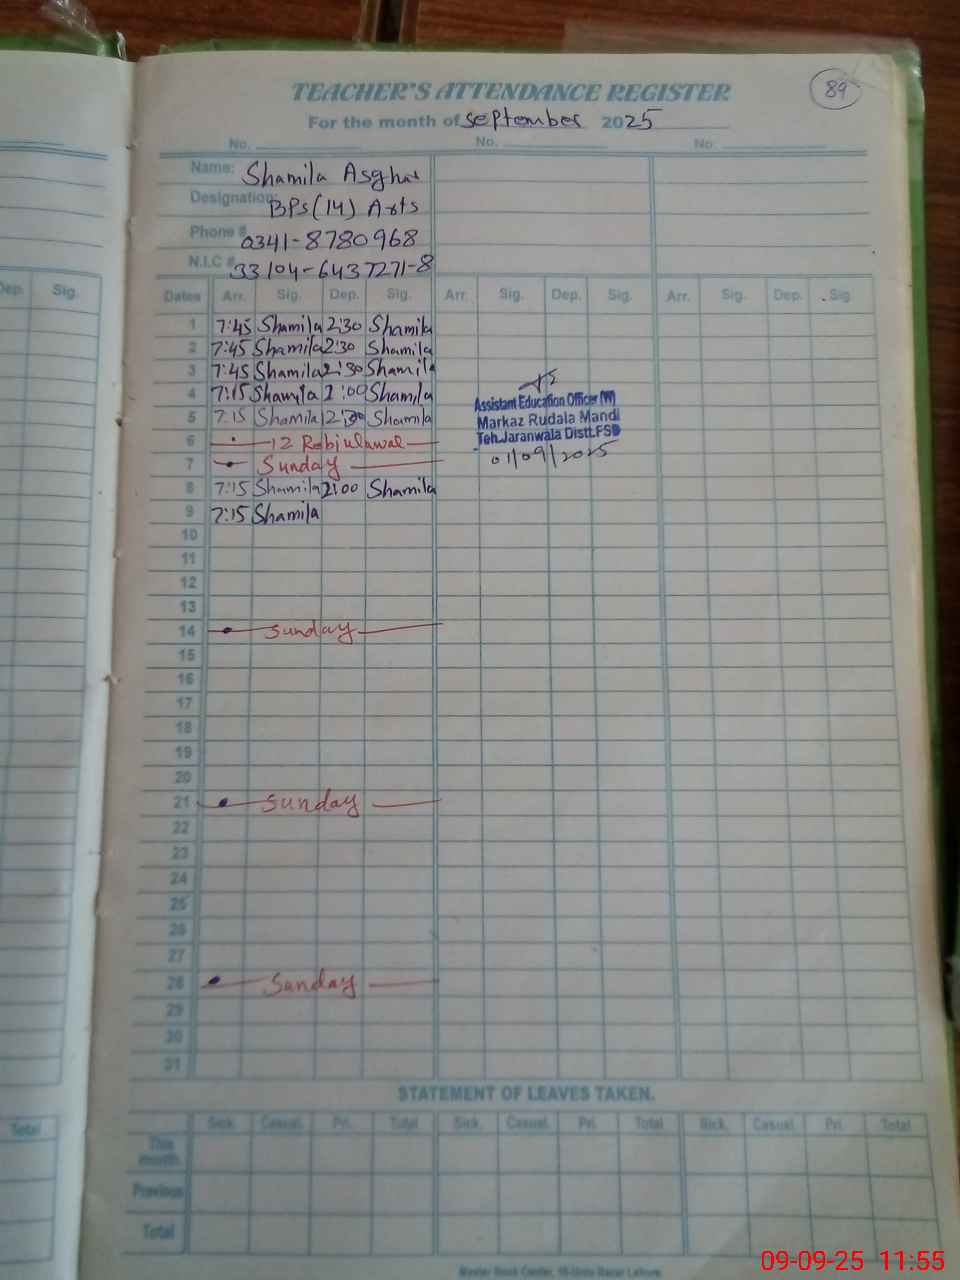 89
TEACHER'S ATTENDANCE REGISTER
For the month of september 2025
No. No. No.
Name: Shamila Asghar
Designation: BPS (14) Arts
Phone # 0341-8780968
N.I.C # 33104-6437271-8
Dep. Sig.
Dates Arr. Sig. Dep. Sig. Arr. Sig. Dep. Sig. Arr. Sig. Dep. Sig.
1 7:45 Shamila 2:30 Shamila
2 7:45 Shamila 2:30 Shamila
3 7:45 Shamila 2:30 Shamila
4 7:15 Shamila 2:00 Shamila
5 7:15 Shamila Shamila
Assistant Education Officer (W)
Markaz Rudala Mandi
Teh.Jaranwala Distt.FSD
01/09/2025
6 12 Rabiulawal
7 Sunday
8 7:15 Shamila 2:00 Shamila
9 7:15 Shamila
10
11
12
13
14 Sunday
15
16
17
18
19
20
21 Sunday
22
23
24
25
26
27
28 Sunday
29
30
31
STATEMENT OF LEAVES TAKEN.
Total
Sick. Casual. Pri. Total Sick. Casual. Pri. Total Sick. Casual. Pri. Total
This
month.
Previous
Total
Master Book Center, 16-Urdu Bazar Lahore.
09-09-25 11:55